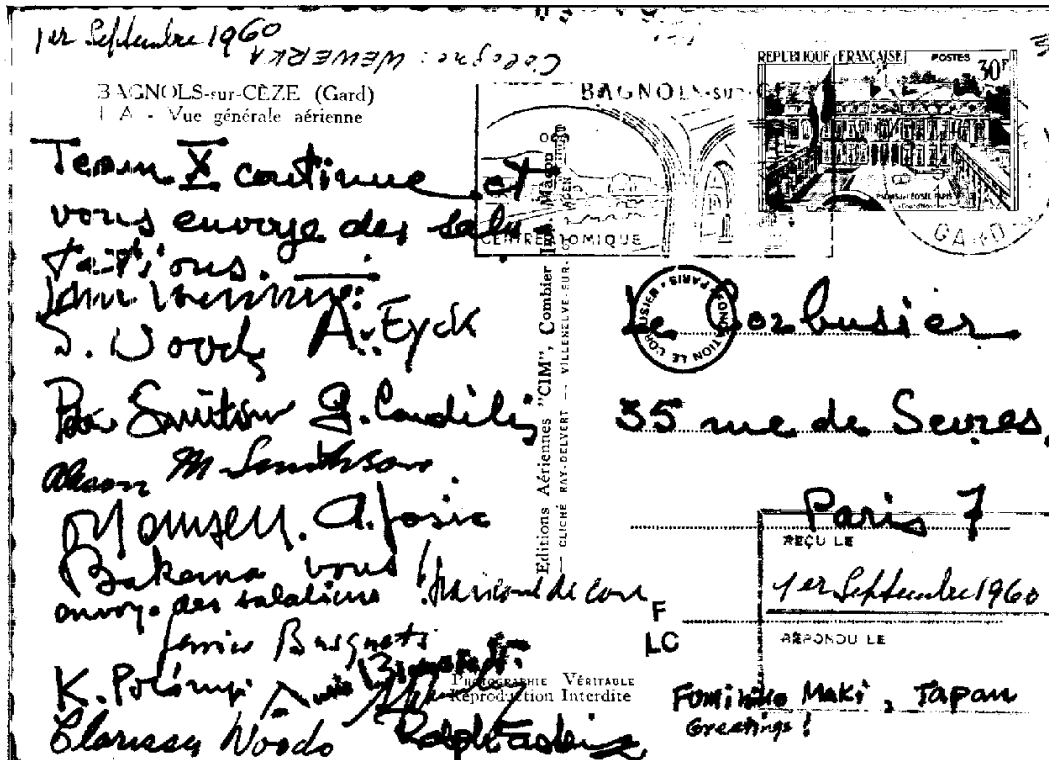 1er Septembre 1960
Cologne: WEWERKA
BAGNOLS-sur-CÈZE (Gard)
1 A - Vue générale aérienne
Team X continue et
vous envoye des salu-
tations.
John Voelcker
S. Woods A. v. Eyck
Peter Smithson G. Candilis
Alison M. Smithson
A. Josic
Bakema vous
envoye des salutations
K. Polónyi
Clarissa Woods Ralph Erskine
Editions Aériennes "CIM", Combier Imp. Macon
CLICHÉ RAY-DELVERT — VILLENEUVE-SUR-
PHOTOGRAPHIE VÉRITABLE
Reproduction Interdite
BAGNOLS-sur-
CENTRE ATOMIQUE
REPUBLIQUE FRANÇAISE POSTES 30F
GARD
FONDATION LE CORBUSIER PARIS
Le Corbusier
35 rue de Sevres,
Paris 7
REÇU LE
1er Septembre 1960
RÉPONDU LE
F
LC
Fumihiko Maki, Japan
Greetings!